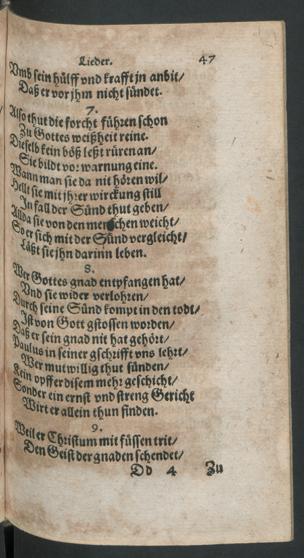 Lieder. 47
Vmb sein hülff vnd krafft jn anbit/
Daß er vor jhm nicht sündet.
7.
Also thut die forcht führen schon
Zu Gottes weißheit reine.
Dieselb kein böß leßt rüren an/
Sie bildt vor warnung eine.
Wann man sie da nit hören wil/
Helt sie mit jhrer wirckung still
In fall der Sünd thut geben/
Allda sie von den menschen weicht/
So er sich mit der Sünd vergleicht/
Läßt sie jhn darinn leben.
8.
Wer Gottes gnad entpfangen hat/
Vnd sie wider verlohren/
Durch seine Sünd kompt in den todt/
Ist von Gott gstossen worden/
Daß er sein gnad nit hat gehört/
Paulus in seiner gschrifft vns lehrt/
Wer mutwillig thut sünden/
Kein opffer disem mehr geschicht/
Sonder ein ernst vnd streng Gericht
Wirt er allein thun finden.
9.
Weil er Christum mit füssen trit/
Den Geist der gnaden schendet/
Dd 4 Zu